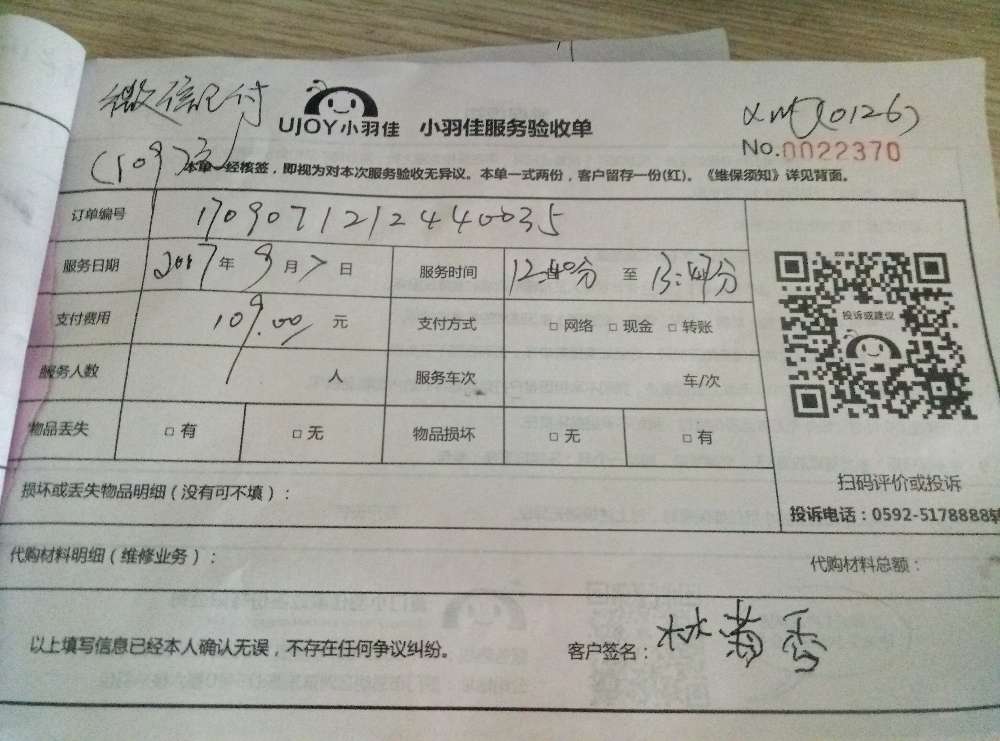 微信已付
UJOY小羽佳 小羽佳服务验收单
XMJ(0126)
No.0022370
(109元)
本单一经核签，即视为对本次服务验收无异议。本单一式两份，客户留存一份(红)。《维保须知》详见背面。
订单编号 1709071212440035
服务日期 2017年9月7日 服务时间 12:40分 至 13:47分
支付费用 109.00 元 支付方式 □ 网络 □ 现金 □ 转账
投诉或建议
服务人数 1 人 服务车次 车/次
物品丢失 □ 有 □ 无 物品损坏 □ 无 □ 有
损坏或丢失物品明细（没有可不填）：
扫码评价或投诉
投诉电话：0592-5178888转
代购材料明细（维修业务）： 代购材料总额：
以上填写信息已经本人确认无误，不存在任何争议纠纷。 客户签名：林 秀